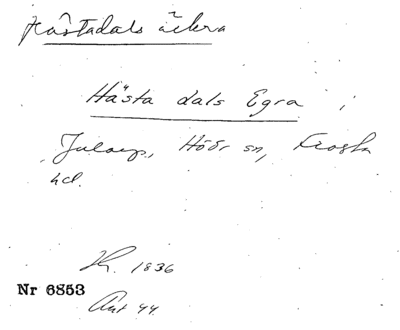 Hästadals åkra
Hästa dals Egra i
Julaup., Höör sn, Frosta
hd.
Lk. 1836
Nr 6853
Akt 44.